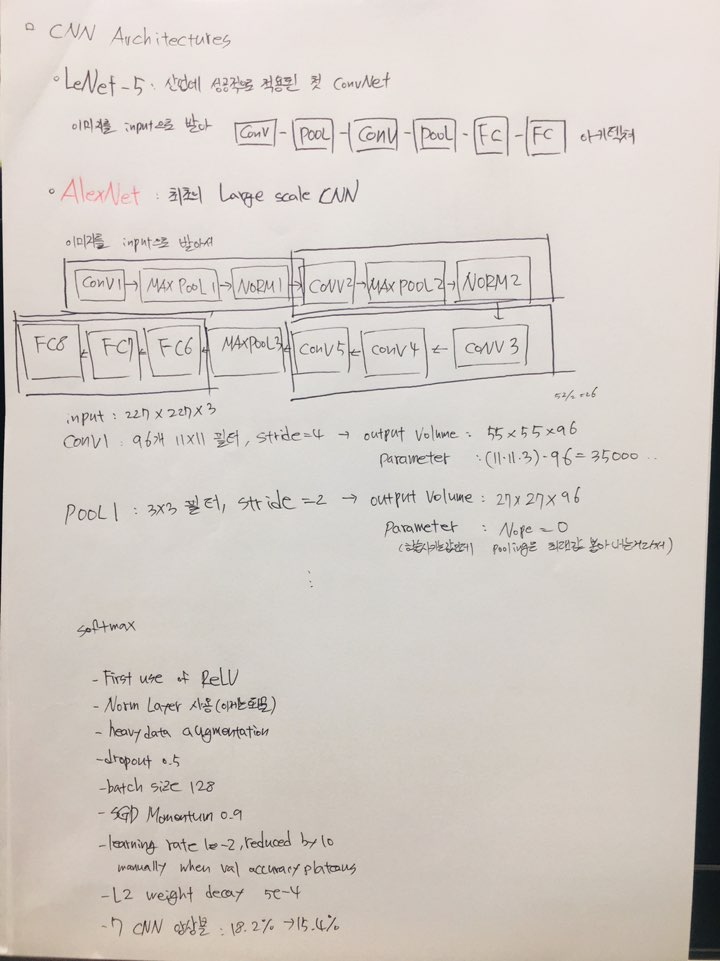 □ CNN Architectures
◦ LeNet-5 : 산업에 성공적으로 적용된 첫 ConvNet
이미지를 input으로 받아 Conv - POOL - Conv - POOL - FC - FC 아키텍쳐
◦ AlexNet : 최초의 Large scale CNN
이미지를 input으로 받아서
CONV1 → MAXPOOL1 → NORM1 → CONV2 → MAXPOOL2 → NORM2
FC8 ← FC7 ← FC6 ← MAXPOOL3 ← CONV5 ← CONV4 ← CONV3
input : 227 x 227 x 3
CONV1 : 96개 11x11 필터, stride=4 → output Volume : 55 x 55 x 96
Parameter : (11·11·3)·96 = 35000 ..
POOL1 : 3x3 필터, stride = 2 → output Volume : 27 x 27 x 96
Parameter : Nope = 0
(학습시키는값인데 pooling은 최댓값 뽑아내는거라서)
⋮
softmax
- First use of ReLU
- Norm Layer 사용
- heavy data augmentation
- dropout 0.5
- batch size 128
- SGD Momentum 0.9
- learning rate 1e-2, reduced by 10
manually when val accuracy plateaus
- L2 weight decay 5e-4
- 7 CNN 앙상블 : 18.2% → 15.4%